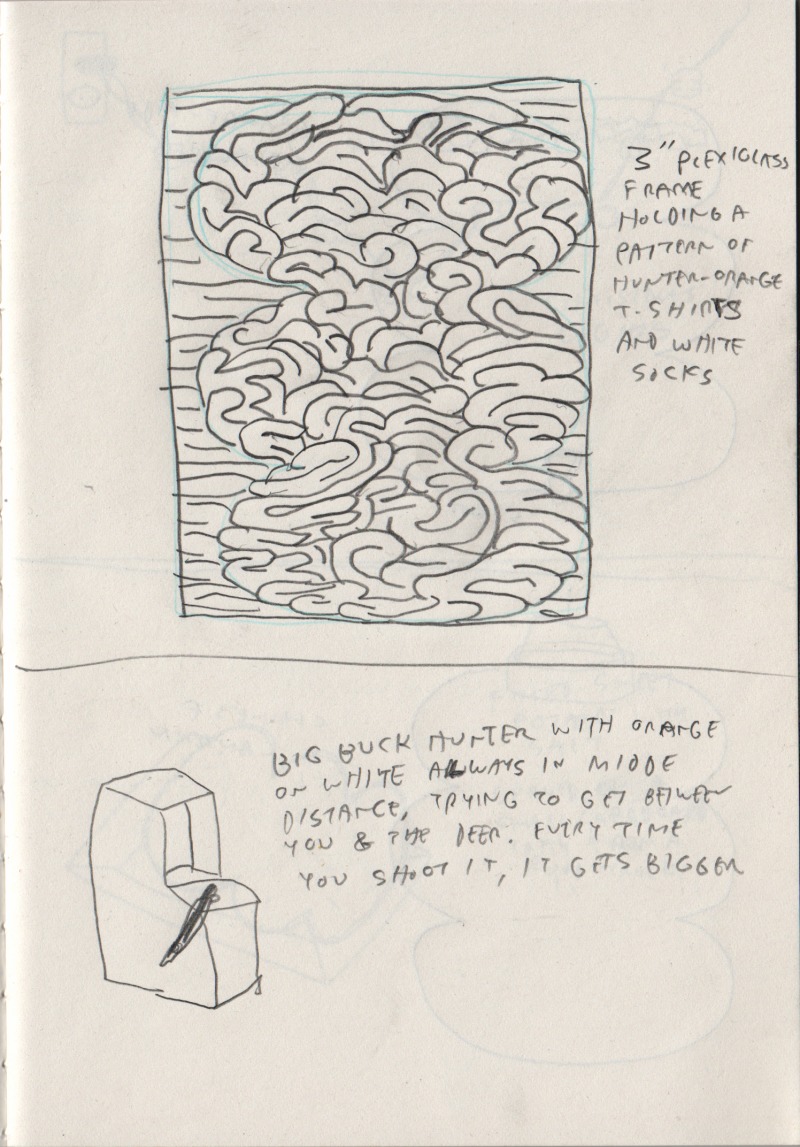 3" PLEXIGLASS
FRAME
HOLDING A
PATTERN OF
HUNTER-ORANGE
T-SHIRTS
AND WHITE
SOCKS
BIG BUCK HUNTER WITH ORANGE
OR WHITE ALWAYS IN MIDDE
DISTANCE, TRYING TO GET BETWEEN
YOU & THE DEER. EVERY TIME
YOU SHOOT IT, IT GETS BIGGER